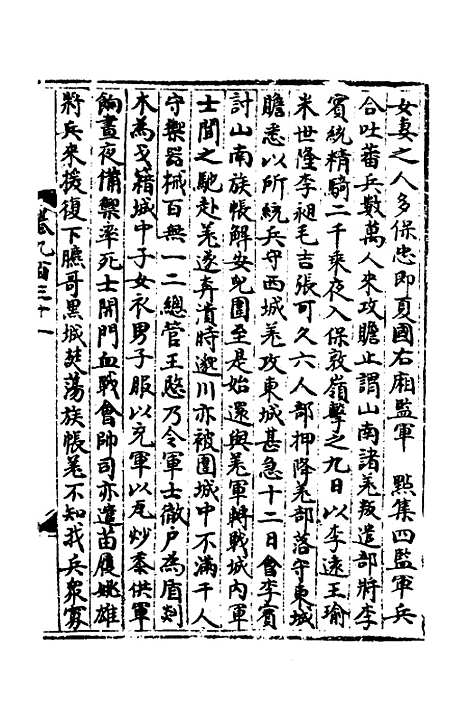 女妻之人多保忠即夏國右廂監軍　點集四監軍兵
合吐蕃兵數萬人來攻瞻止謂山南諸羗叛遣部將李
賓統精騎二千乘夜入保敦嶺擊之九日以李遠王瑜
米世隆李禠毛吉張可久六人部押降羗部落守東城
瞻悉以所統兵守西城羗攻東城甚急十二日會李賓
討山南族帳解安兒圍至是始還與羗軍轉戰城内軍
士聞之馳赴羗遂奔潰時邈川亦被圍城中不滿千人
守禦器械百無一二總管王愍乃令軍士徹户為盾剡
木為戈籍城中子女衣男子服以充軍以瓦炒黍供軍
餉晝夜備禦率死士開門血戰會帥司亦遣苗履姚雄
將兵來援復下臕哥黑城焚蕩族帳羗不知我兵衆寡
卷九百三十一